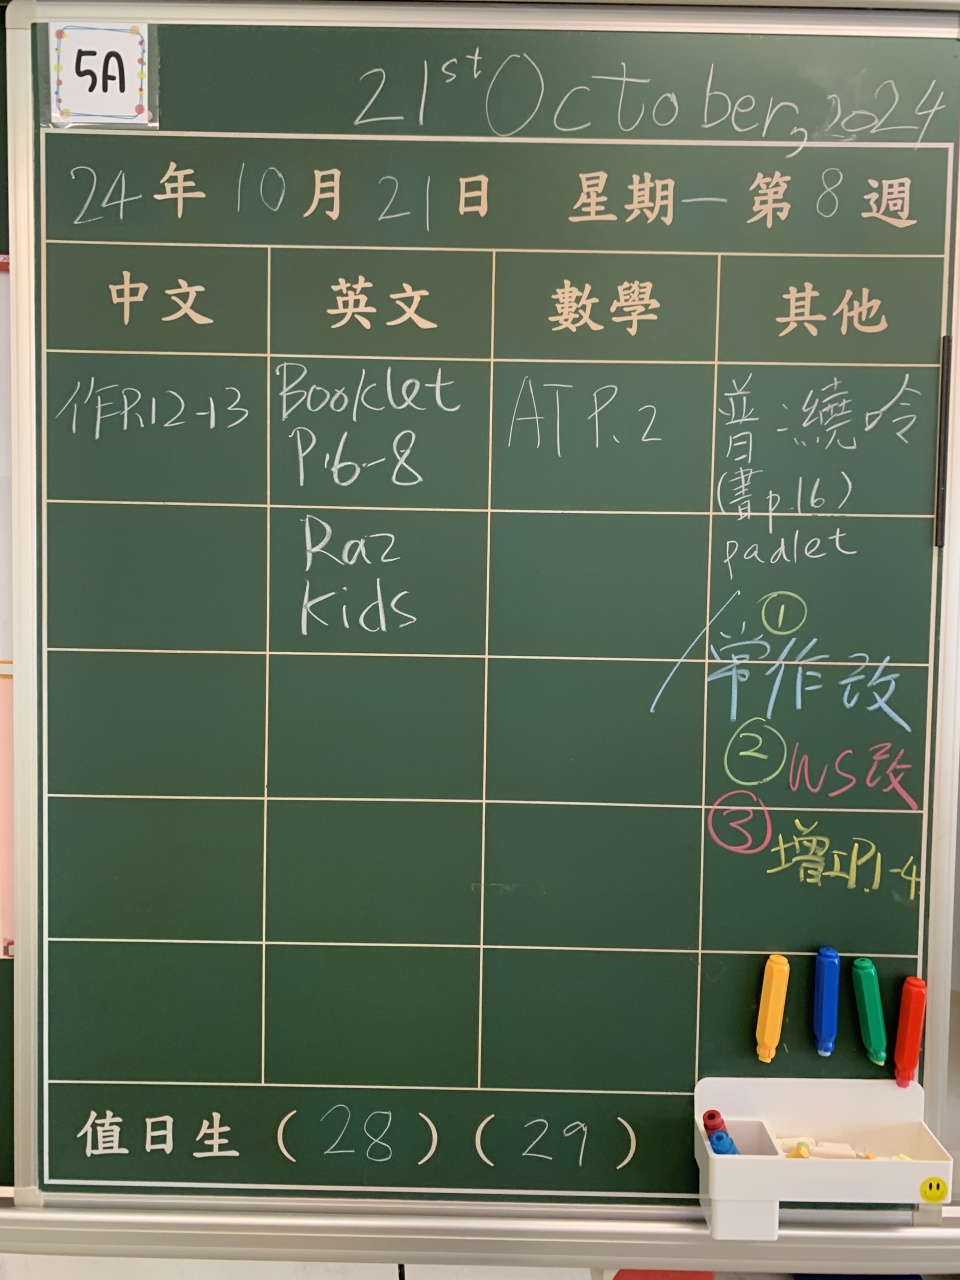 5A
21st October, 2024
24年10月21日 星期一 第8週
中文 英文 數學 其他
作P.12-13
Booklet
P.6-8
Raz
Kids
AT P.2
普:繞呤
(書p.16)
padlet
①
常作改
② WS改
③ 增工P.1-4
值日生 (28) (29)